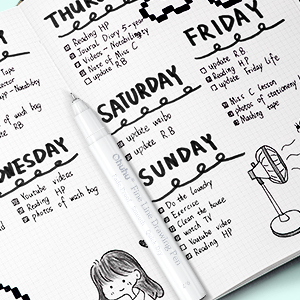 THUR
Reading HP
Journal Diary 5-year
Videos - Notability
Note of Miss C
update RB
FRIDAY
update RB
Reading HP
update Friday Life
Miss C lesson
photos of stationery
Masking tape
Tape
SATURDAY
update weibo
update RB
photos of wash bag
RB
WEDNESDAY
Youtube videos
Reading HP
photos of wash bag
SUNDAY
Do the laundry
Exercise
Clean the house
watch TV
Youtube video
Reading HP
Ohuhu Fine Line Drawing Pen